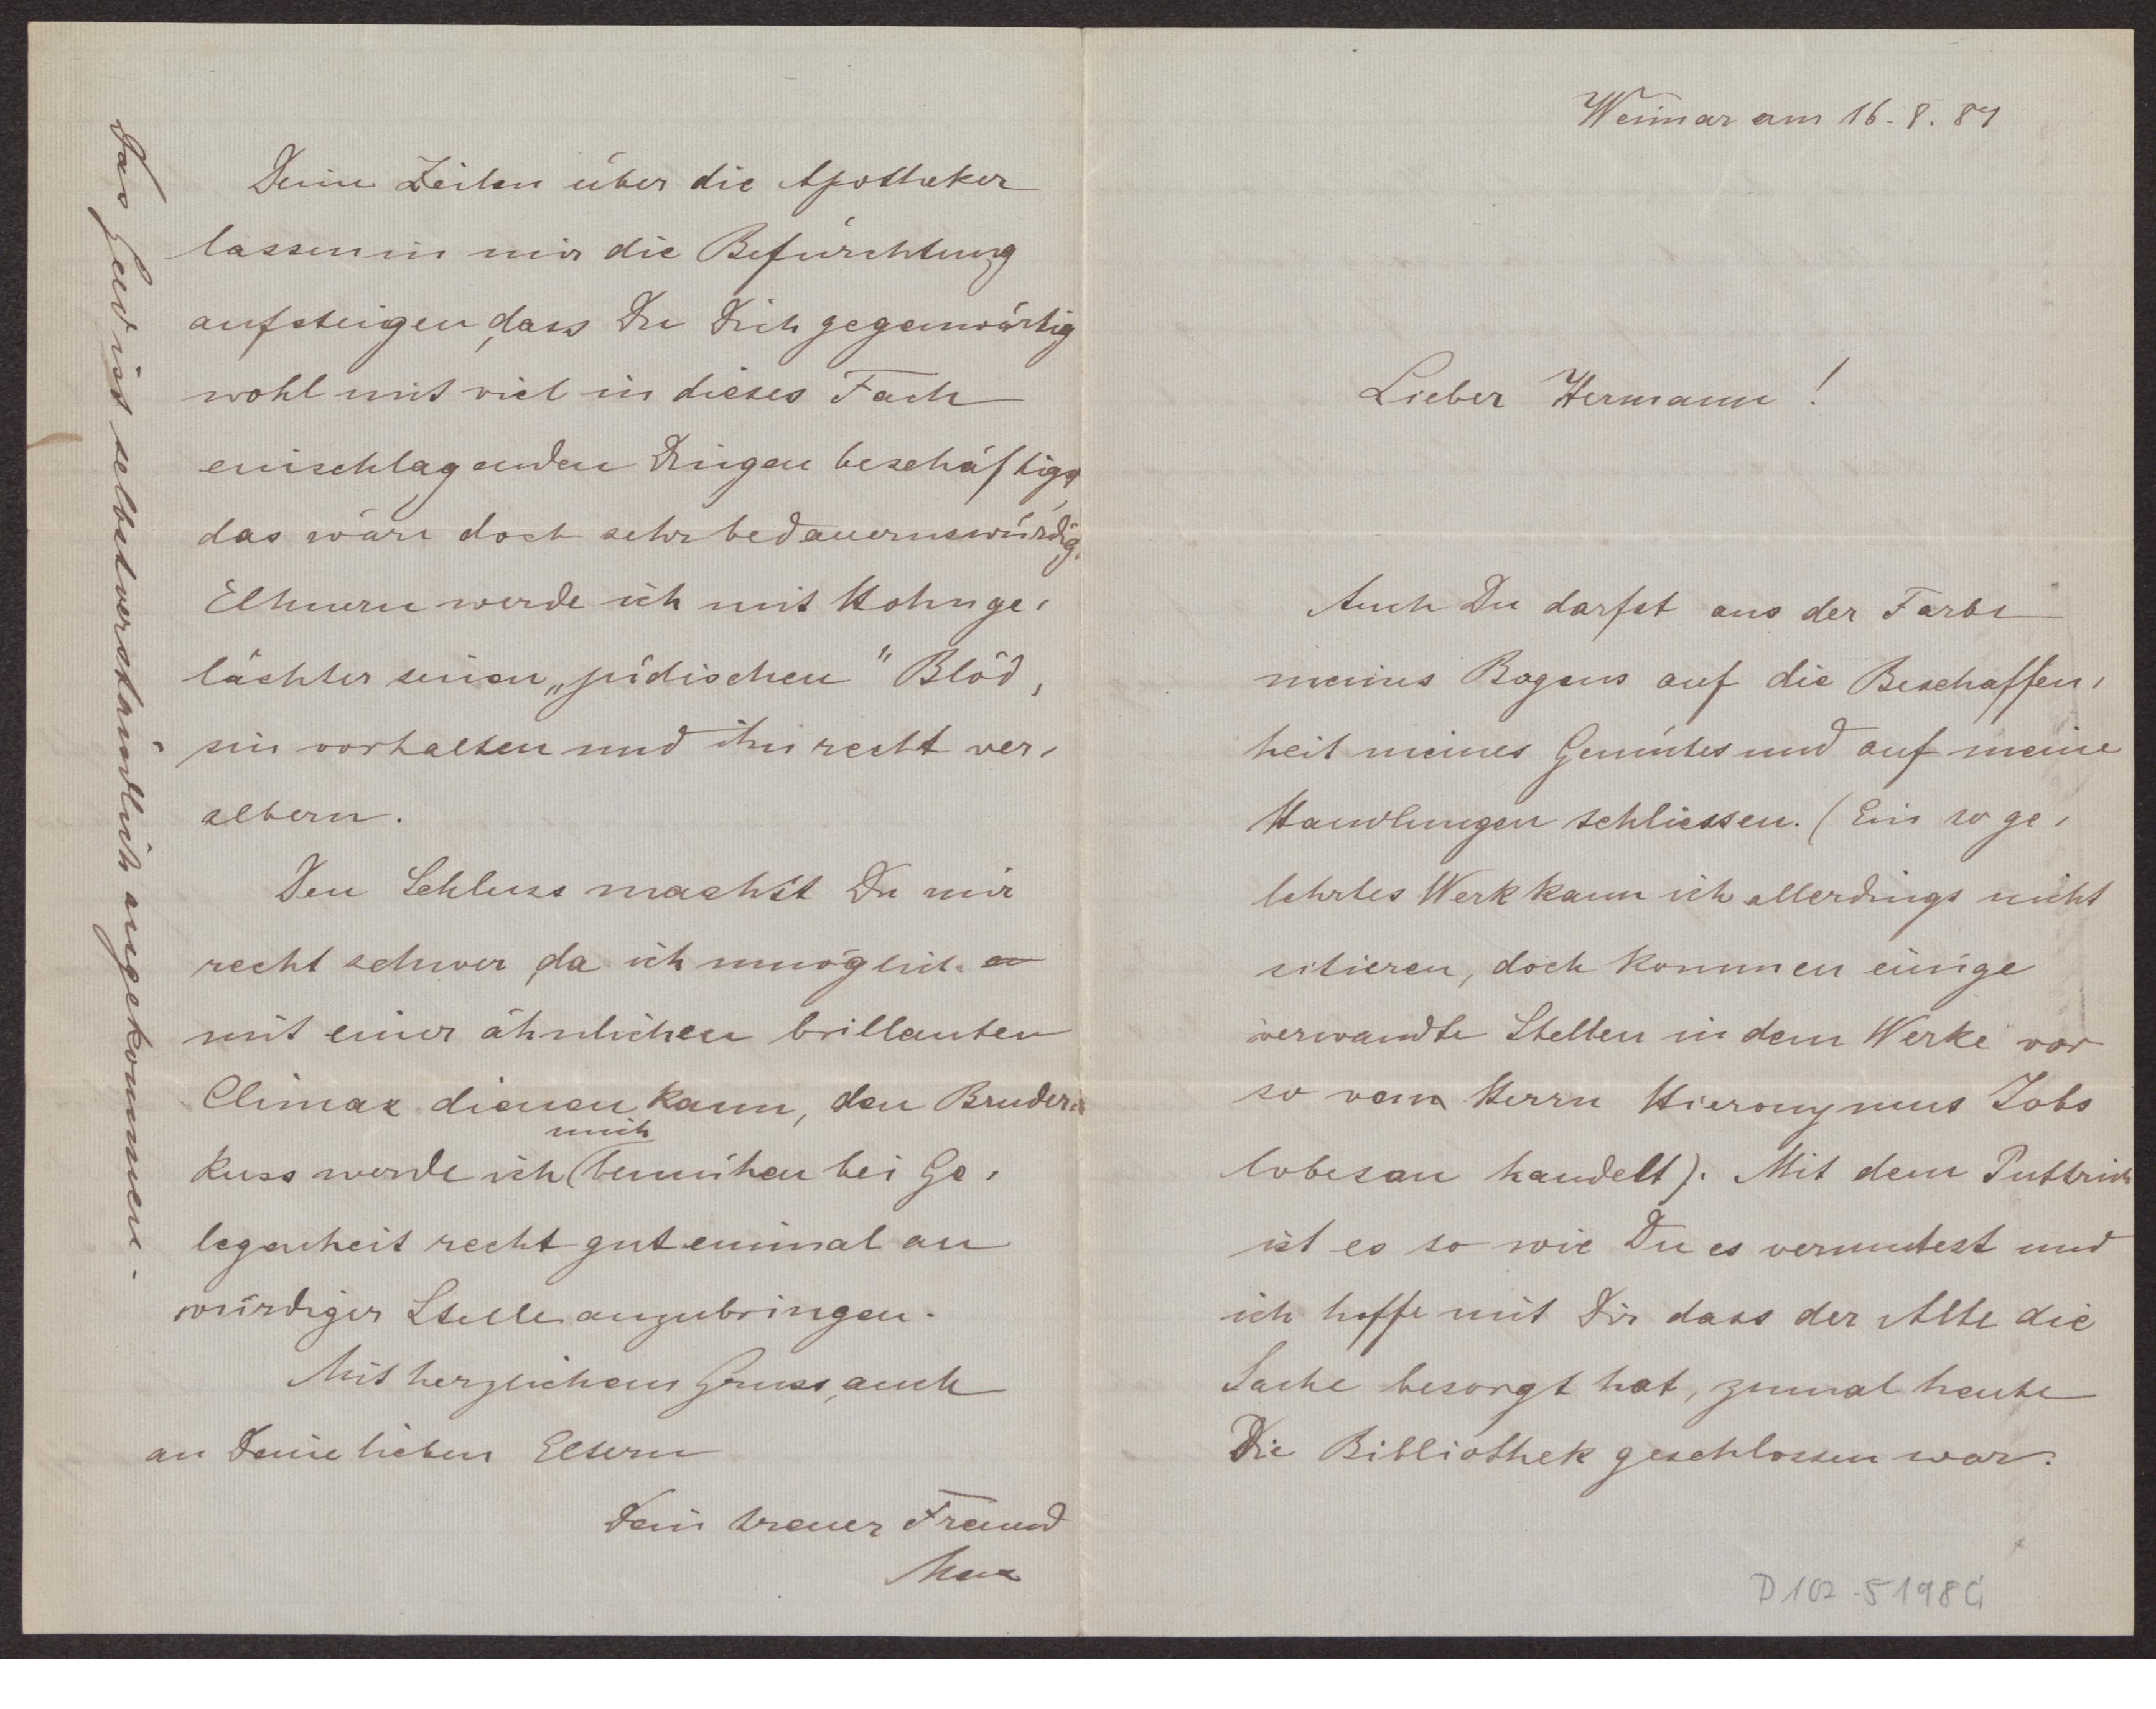 Weimar am 16. 8. 84
Lieber Hermann!
Auch Du darfst aus der Farbe
meines Bogens auf die Beschaffen,
heit meines Gemütes und auf meine
Handlungen schliessen. (Ein so ge,
lehrtes Werk kann ich allerdings nicht
citieren, doch kommen einige
verwandte Stellen in dem Werke vor
so vom Herrn Hieronymus Jobs
lobesan handelt). Mit dem Puttrich
ist es so wie Du es vermutest und
ich hoffe mit Dir dass der Alte die
Sache besorgt hat, zumal heute
Die Bibliothek geschlossen war.
D 102-5198 G
Deine Zeilen über die Apotheker
lassen in mir die Befürchtung
aufsteigen, dass Du Dich gegenwärtig
wohl mit viel in dieses Fach
einschlagenden Dingen beschäftigst,
das wäre doch sehr bedauernswürdig.
werde ich mit Hohnge,
lächter seinen „jüdischen" Blöd,
sin vorhalten und ihn recht ver,
albern.
Den Schluss machst Du mir
recht schwer, da ich unmöglich
mit einer ähnlichen brillanten
Climax dienen kann, den Bruder,
kuss werde ich mich bemühen bei Ge,
legenheit recht gut einmal an
würdiger Stelle anzubringen.
Mit herzlichem Gruss, auch
an Deine lieben Eltern
Dein treuer Freund
Max
Das Geld ist selbstverständlich angekommen.